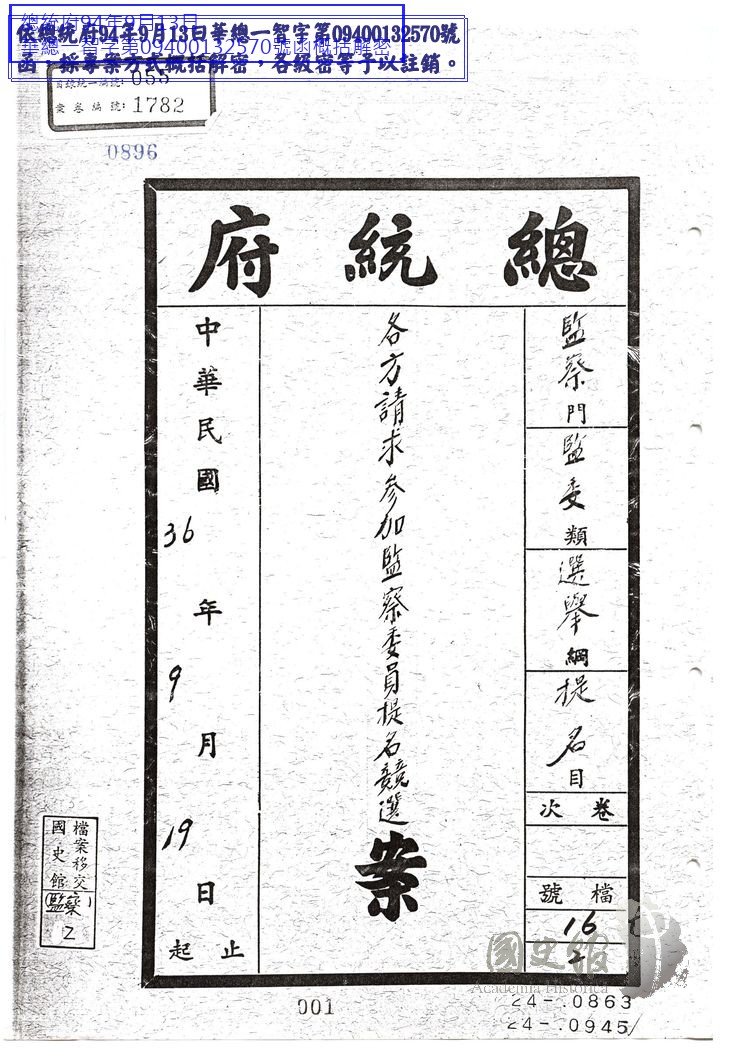 總統府94年9月13日
華總一智字第09400132570號函概括解密
依總統府94年9月13日華總一智字第09400132570號
函，採專案方式概括解密，各級密等予以註銷。
目錄統一編號: 055
案卷編號: 1782
0896
總統府
監察門
監委類
選舉綱
提名目
卷次
檔號
16
2
各方請求參加監察委員提名競選案
中華民國36年9月19日
起止
檔案移交
國史館
(監察)
2
國史館
Academia Historica
001
24-.0863
24-.0945/